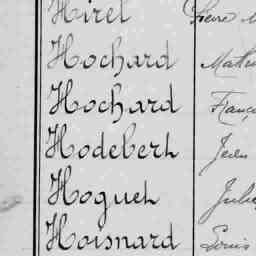 Hirel Pierre
Hochard
Hochard
Hodebert Jean
Hoguet Jules
Hoisnard Louis